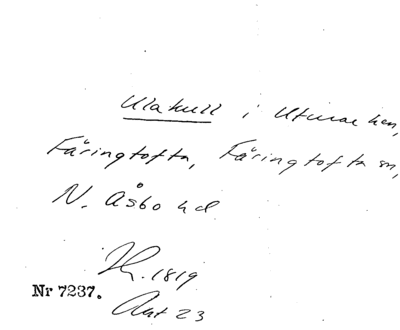 Ulakull i Utmarken,
Färingtofta, Färingtofta sn,
N. Åsbo hd
Jr. 1819
Nr 7237.
Akt 23